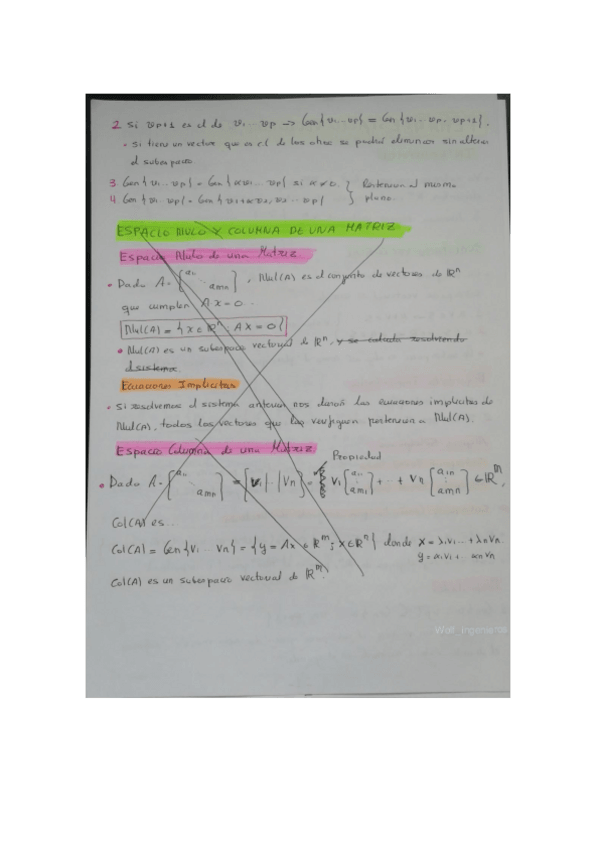 2 Si vp+1 es cl de v1...vp → Gen{v1...vp} = Gen{v1...vp, vp+1}.
• si tienes un vector que es c.l de los otros se podrá eliminar sin alterar
el subespacio.
3 Gen{v1...vp} = Gen{αv1...vp} si α≠0. } Pertenecen al mismo
4 Gen{v1...vp} = Gen{v1+αv2, v2...vp} } plano.
ESPACIO NULO Y COLUMNA DE UNA MATRIZ
Espacio Nulo de una Matriz
• Dado A=[a11 ... amn], Nul(A) es el conjunto de vectores de ℝⁿ
que cumplen AX=0..
Nul(A) = {x∈ℝⁿ AX=0}
• Nul(A) es un subespacio vectorial de ℝⁿ, y se calcula resolviendo
el sistema
Ecuaciones Implícitas
• Si resolvemos el sistema anterior nos dará las ecuaciones implícitas de
Nul(A), todos los vectores que las verifiquen pertenecen a Nul(A).
Espacio Columna de una Matriz
Propiedad
• Dado A=[a11 ... amn] = [v1|..|vn] = v1[a11 : am1] + .. + vn[a1n : amn] ∈ℝᵐ,
Col(A) es...
Col(A) = Gen{v1...vn} = {y=Ax∈ℝᵐ; x∈ℝⁿ} donde
Col(A) es un subespacio vectorial de ℝᵐ.
Wolf_Ingenieros